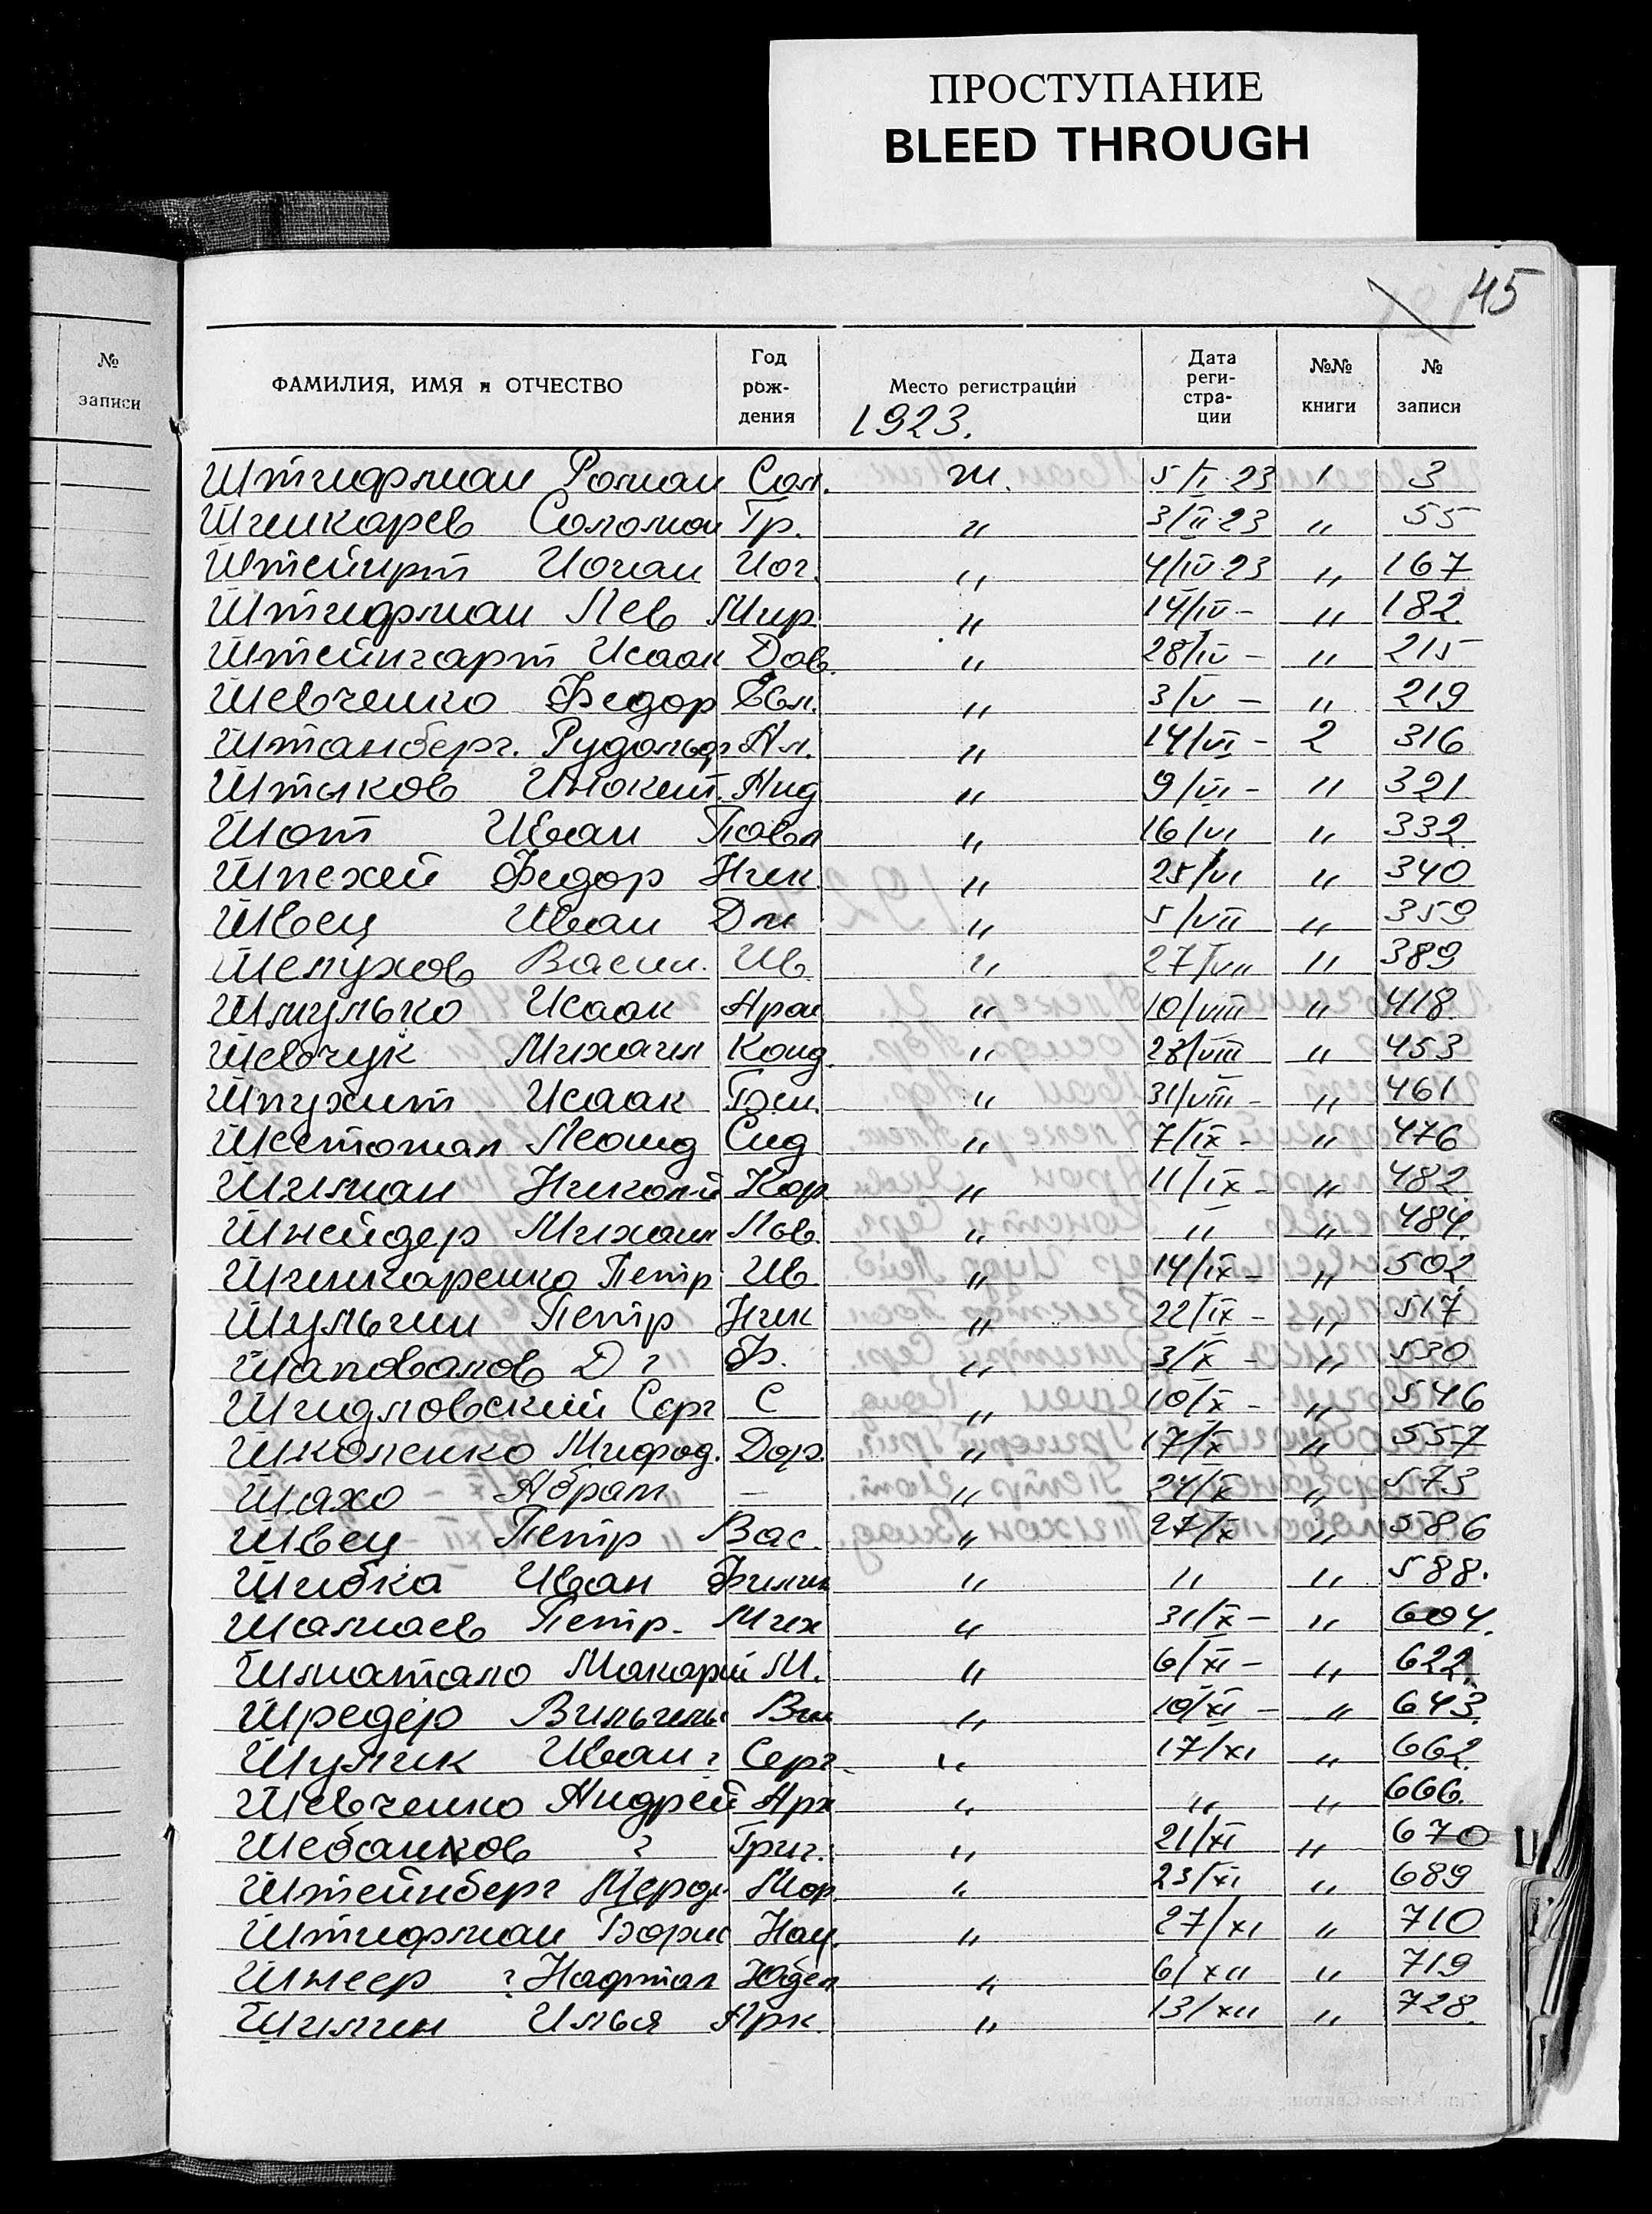 ПРОСТУПАНИЕ
BLEED THROUGH
45
№ записи
ФАМИЛИЯ, ИМЯ и ОТЧЕСТВО Год рож-дения Место регистрации Дата реги-стра-ции №№ книги № записи
1923.
Штифман Роман Сол. м. 5/I-23 1 3
Шинкарев Соломон Гр. " 3/II-23 " 55
Иоган Иог. " 4/IV-23 " 167
Штифман Лев Мир. " 14/IV- " 182.
Штейнгарт Исаак Дав. " 28/IV- " 215
Шевченко Федор Евл. " 3/V - " 219
Штанберг. Рудольф Ал. " 14/VI- 2 316
Штыков Инокент. Анд " 9/VI- " 321
Шот Иван Павл " 16/VI " 332.
Шпехей Федор Ник. " 25/VI " 340
Швец Иван Дм " 5/VII " 359
Шелухов Васил. Ив " 27/VII " 389
Шмулько Исаак Арон " 10/VIII " 418.
Шевчук Михаил Конд. " 28/VIII " 453
Исаак " 31/VIII- " 461
Шестопал Леонид Сид " 7/IX- " 476
Шиман Николай Кор. " 11/IX- " 482.
Шнейдер Михаил Льв. " " " 484.
Шинкаренко Петр Ив " 14/IX- " 502
Шульгин Петр Ник " 22/IX- " 517
Шаповалов Д ? Ф. " 3/X- " 530
Шидловский Серг С " 10/X- " 546
Школенко Мифод. Дор. " 17/X " 557
Шахо Абрам — " 24/X " 573
Швец Петр Вас. " 27/X " 586
Шибка Иван Филип " " " 588.
Шалиаев Петр. Мих " 31/X- " 604.
Шматало Макарий М. " 6/XI- " 622.
Шредер Вильгельм Вил " 10/XI- " 643.
Шулик Иван ? Серг. " 17/XI " 662.
Шевченко Андрей Арх " " " 666.
Шебанков ? Григ. " 21/XI " 670
Штейнберг Мор " 23/XI " 689
Штифман Борис Нау. " 27/XI " 710
Шнеер ? Нафтал Юдел " 6/XII " 719
Шилин Илья Арк. " 13/XII " 728.